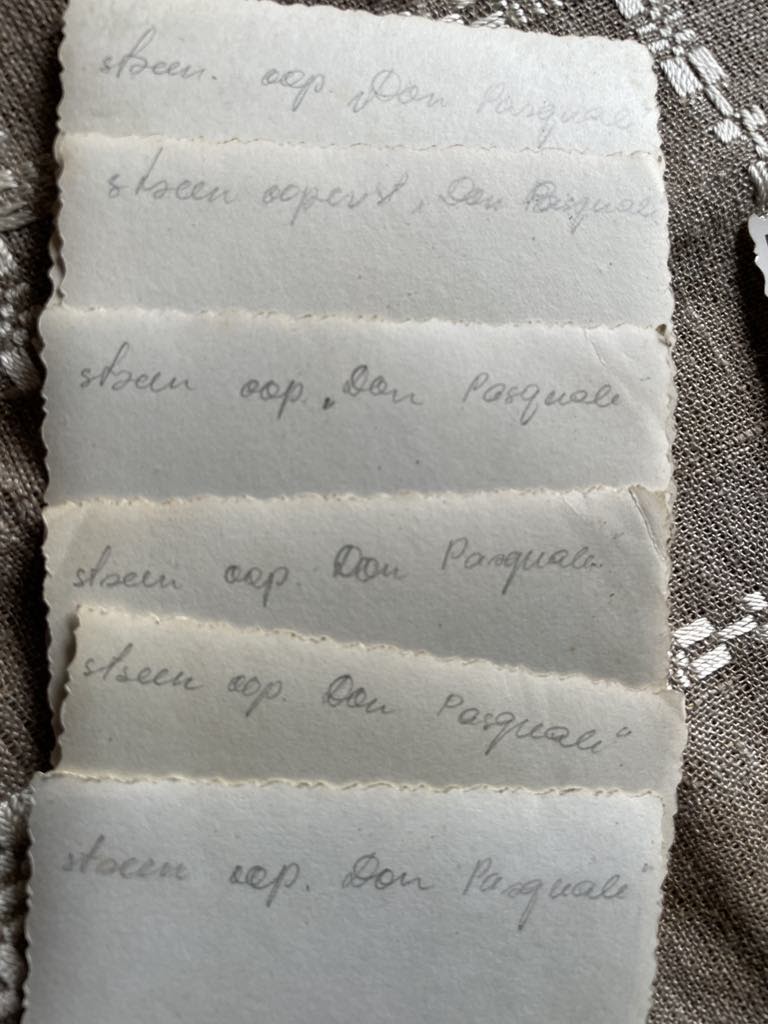 stseen. oop. „Don Pasquale
stseen ooperist „Don Pasquale
stseen oop. „Don Pasquale"
stseen oop. Don Pasquale"
stseen oop. Don Pasquale"
stseen oop. Don Pasquale"